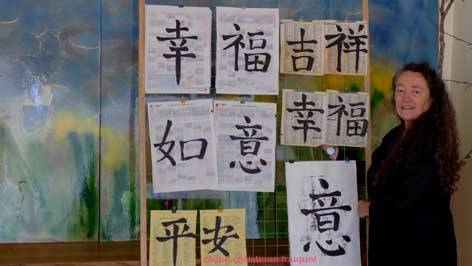 幸福
吉祥
如意
幸福
平安
意
cliché christiane fouquet